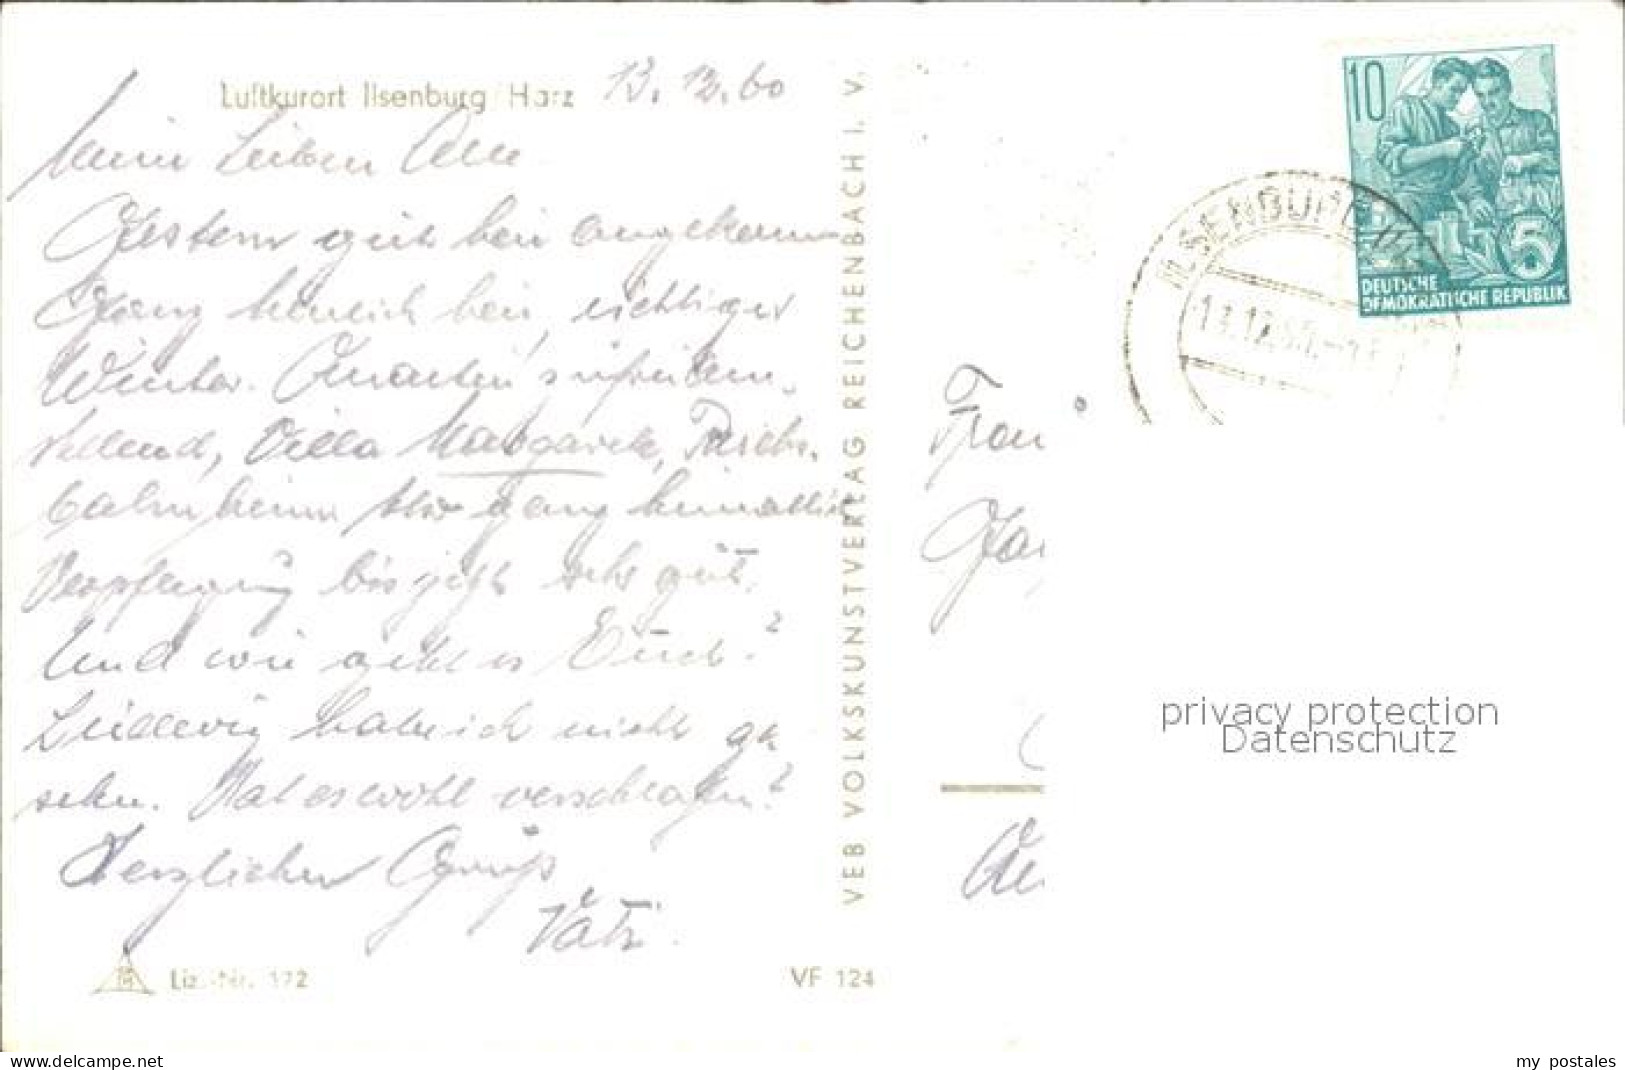 Luftkurort Ilsenburg/Harz 13.12.60
Meine Lieben Alle
Gestern gut hier angekommen
Ganz herrlich hier, richtiger
Winter. Quartier zufrieden-
stellend, Villa Margarete, Reichs-
bahnheim. Also ganz heimatlich
Verpflegung bis jetzt sehr gut.
Und wie geht es Euch?
habe ich nicht ge
sehen. Hat es wohl verschlafen?
Herzlichen Gruß
Vati.
Liz.-Nr. 172
VF 124
VEB VOLKSKUNSTVERLAG REICHENBACH I. V.
10
5
DEUTSCHE
DEMOKRATISCHE REPUBLIK
ILSENBURG
13.12.60
Frau
privacy protection
Datenschutz
www.delcampe.net
my_postales